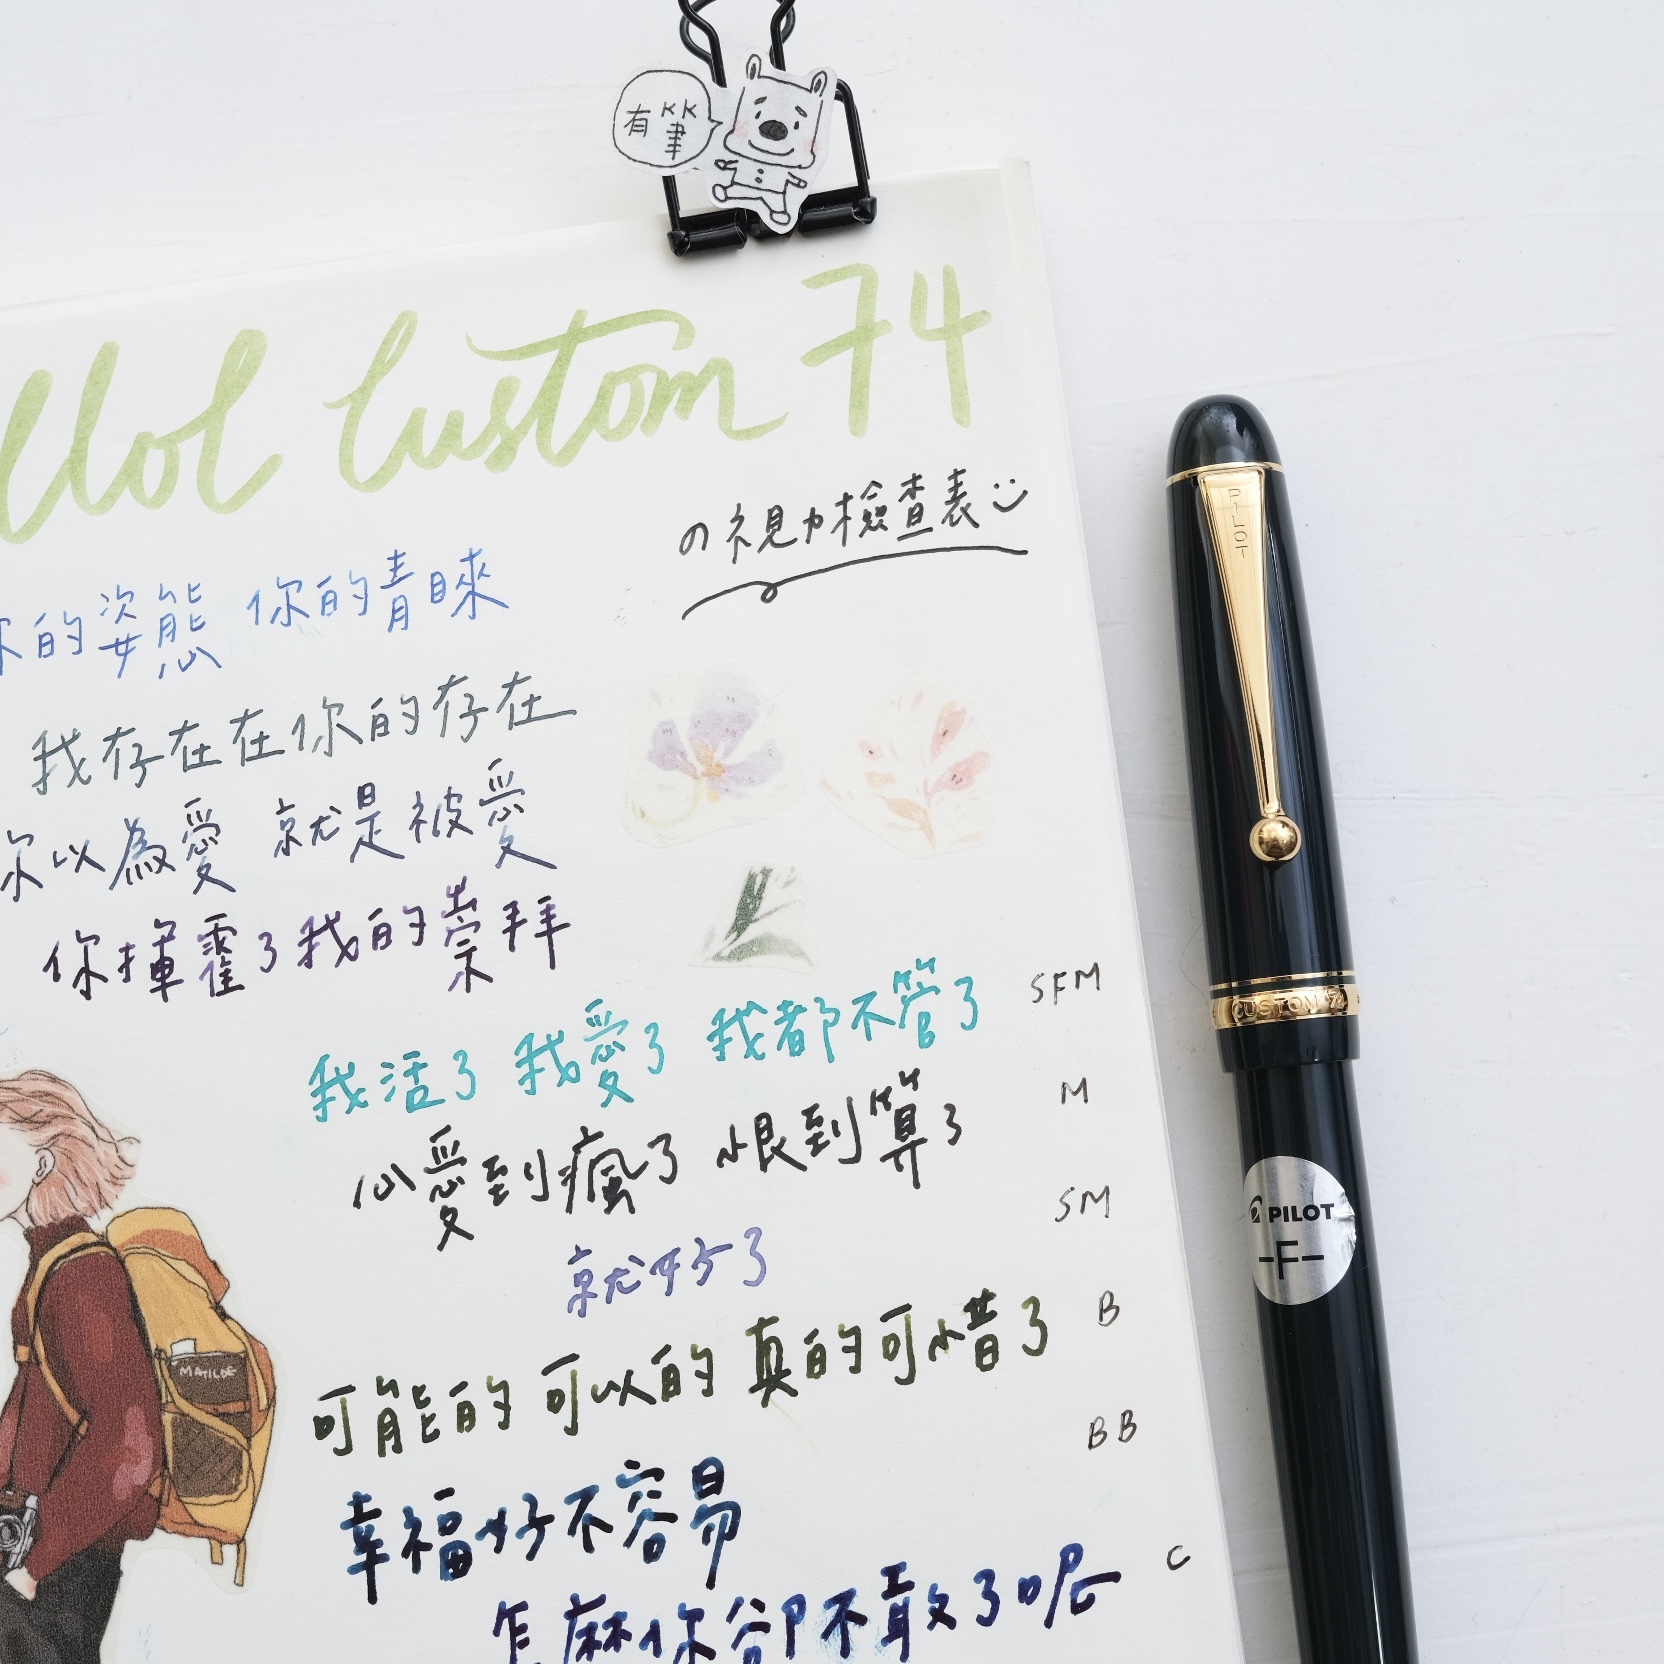 有KK筆
llo! Custom 74
の視力檢查表
你的姿態 你的青睞
我存在在你的存在
你以為愛 就是被愛
你揮霍了我的崇拜
我活了 我愛了 我都不管了 SFM
心愛到瘋了 恨到算了 M
就好了 SM
可能的 可以的 真的可惜了 B
幸福好不容易 BB
怎麼你卻不敢了呢 C
MATILDE
PILOT
CUSTOM 74
PILOT
-F-